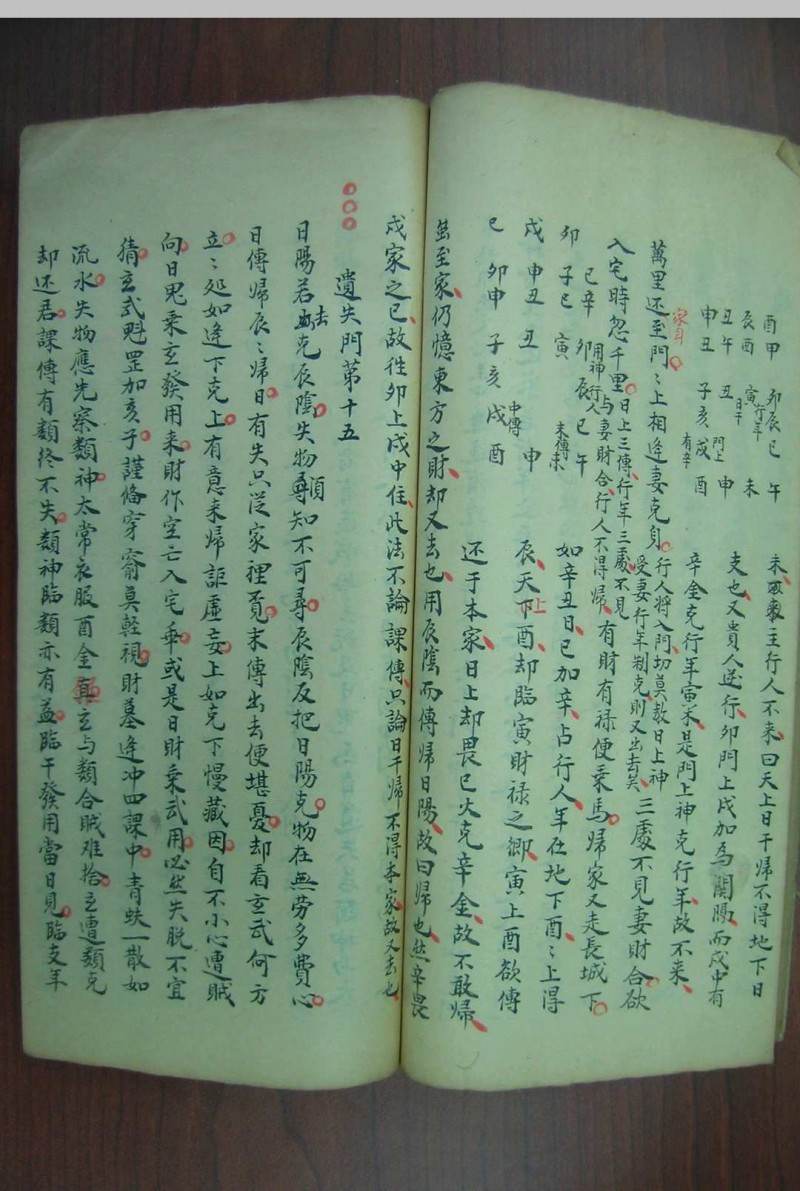 酉甲 卯辰巳 午
辰酉 寅 行年 未
丑午 丑 日干
申丑 子亥戌 門上 申 酉
有辛
未 主行人不来曰天上日干歸不得地下日
支也又貴人逆行卯門上戌加為関隔而戌中有
辛金克行年寅木是門上神克行年故不来
家身
萬里还至門〻上相逢妻克身行人將入門切莫教日上神受妻行年制克則又出去矣三處不見妻財合欲
入宅時忽千里日上三傳行年三處不見与妻財合行人不得歸有財有禄便乗馬歸家又走長城下
已辛 卯 用神 辰 行人 巳 午
卯 子巳 寅 末傳未
戌 申丑 丑 申
巳 卯申 子亥戌 中傳 酉
如辛丑日巳加辛占行人年在地下酉〻上得
辰天上酉却臨寅財禄之鄉寅上酉欲傳
还于本家日上却畏巳火克辛金故不敢歸
雖至家仍憶東方之財却又去也用辰陰而傳歸日陽故曰歸也然辛畏
戌家之巳故徃卯上戌中住此法不論課傳只論日干歸不得本家故又去也
遺失門第十五
日陽若去克辰陰失物須尋知不可尋辰陰反把日陽克物在無劳多費心
日傳歸辰〻歸日有失只従家裡覔末傳出去便堪憂却看玄武何方
立〻処如逢下克上有意来歸詎虚妄上如克下慢藏因自不小心遭賊
向日鬼乗玄發用来財作空亡入宅乖或是日財乗武用必然失脱不宜
猜玄武魁罡加亥子謹俻穿窬莫軽視財墓逢冲四課中青蚨一散如
流水失物應先察類神太常衣服酉金真玄与類合賊难拾玄遭類克
却还君課傳有類终不失類神臨類亦有益臨干發用當日見臨支年